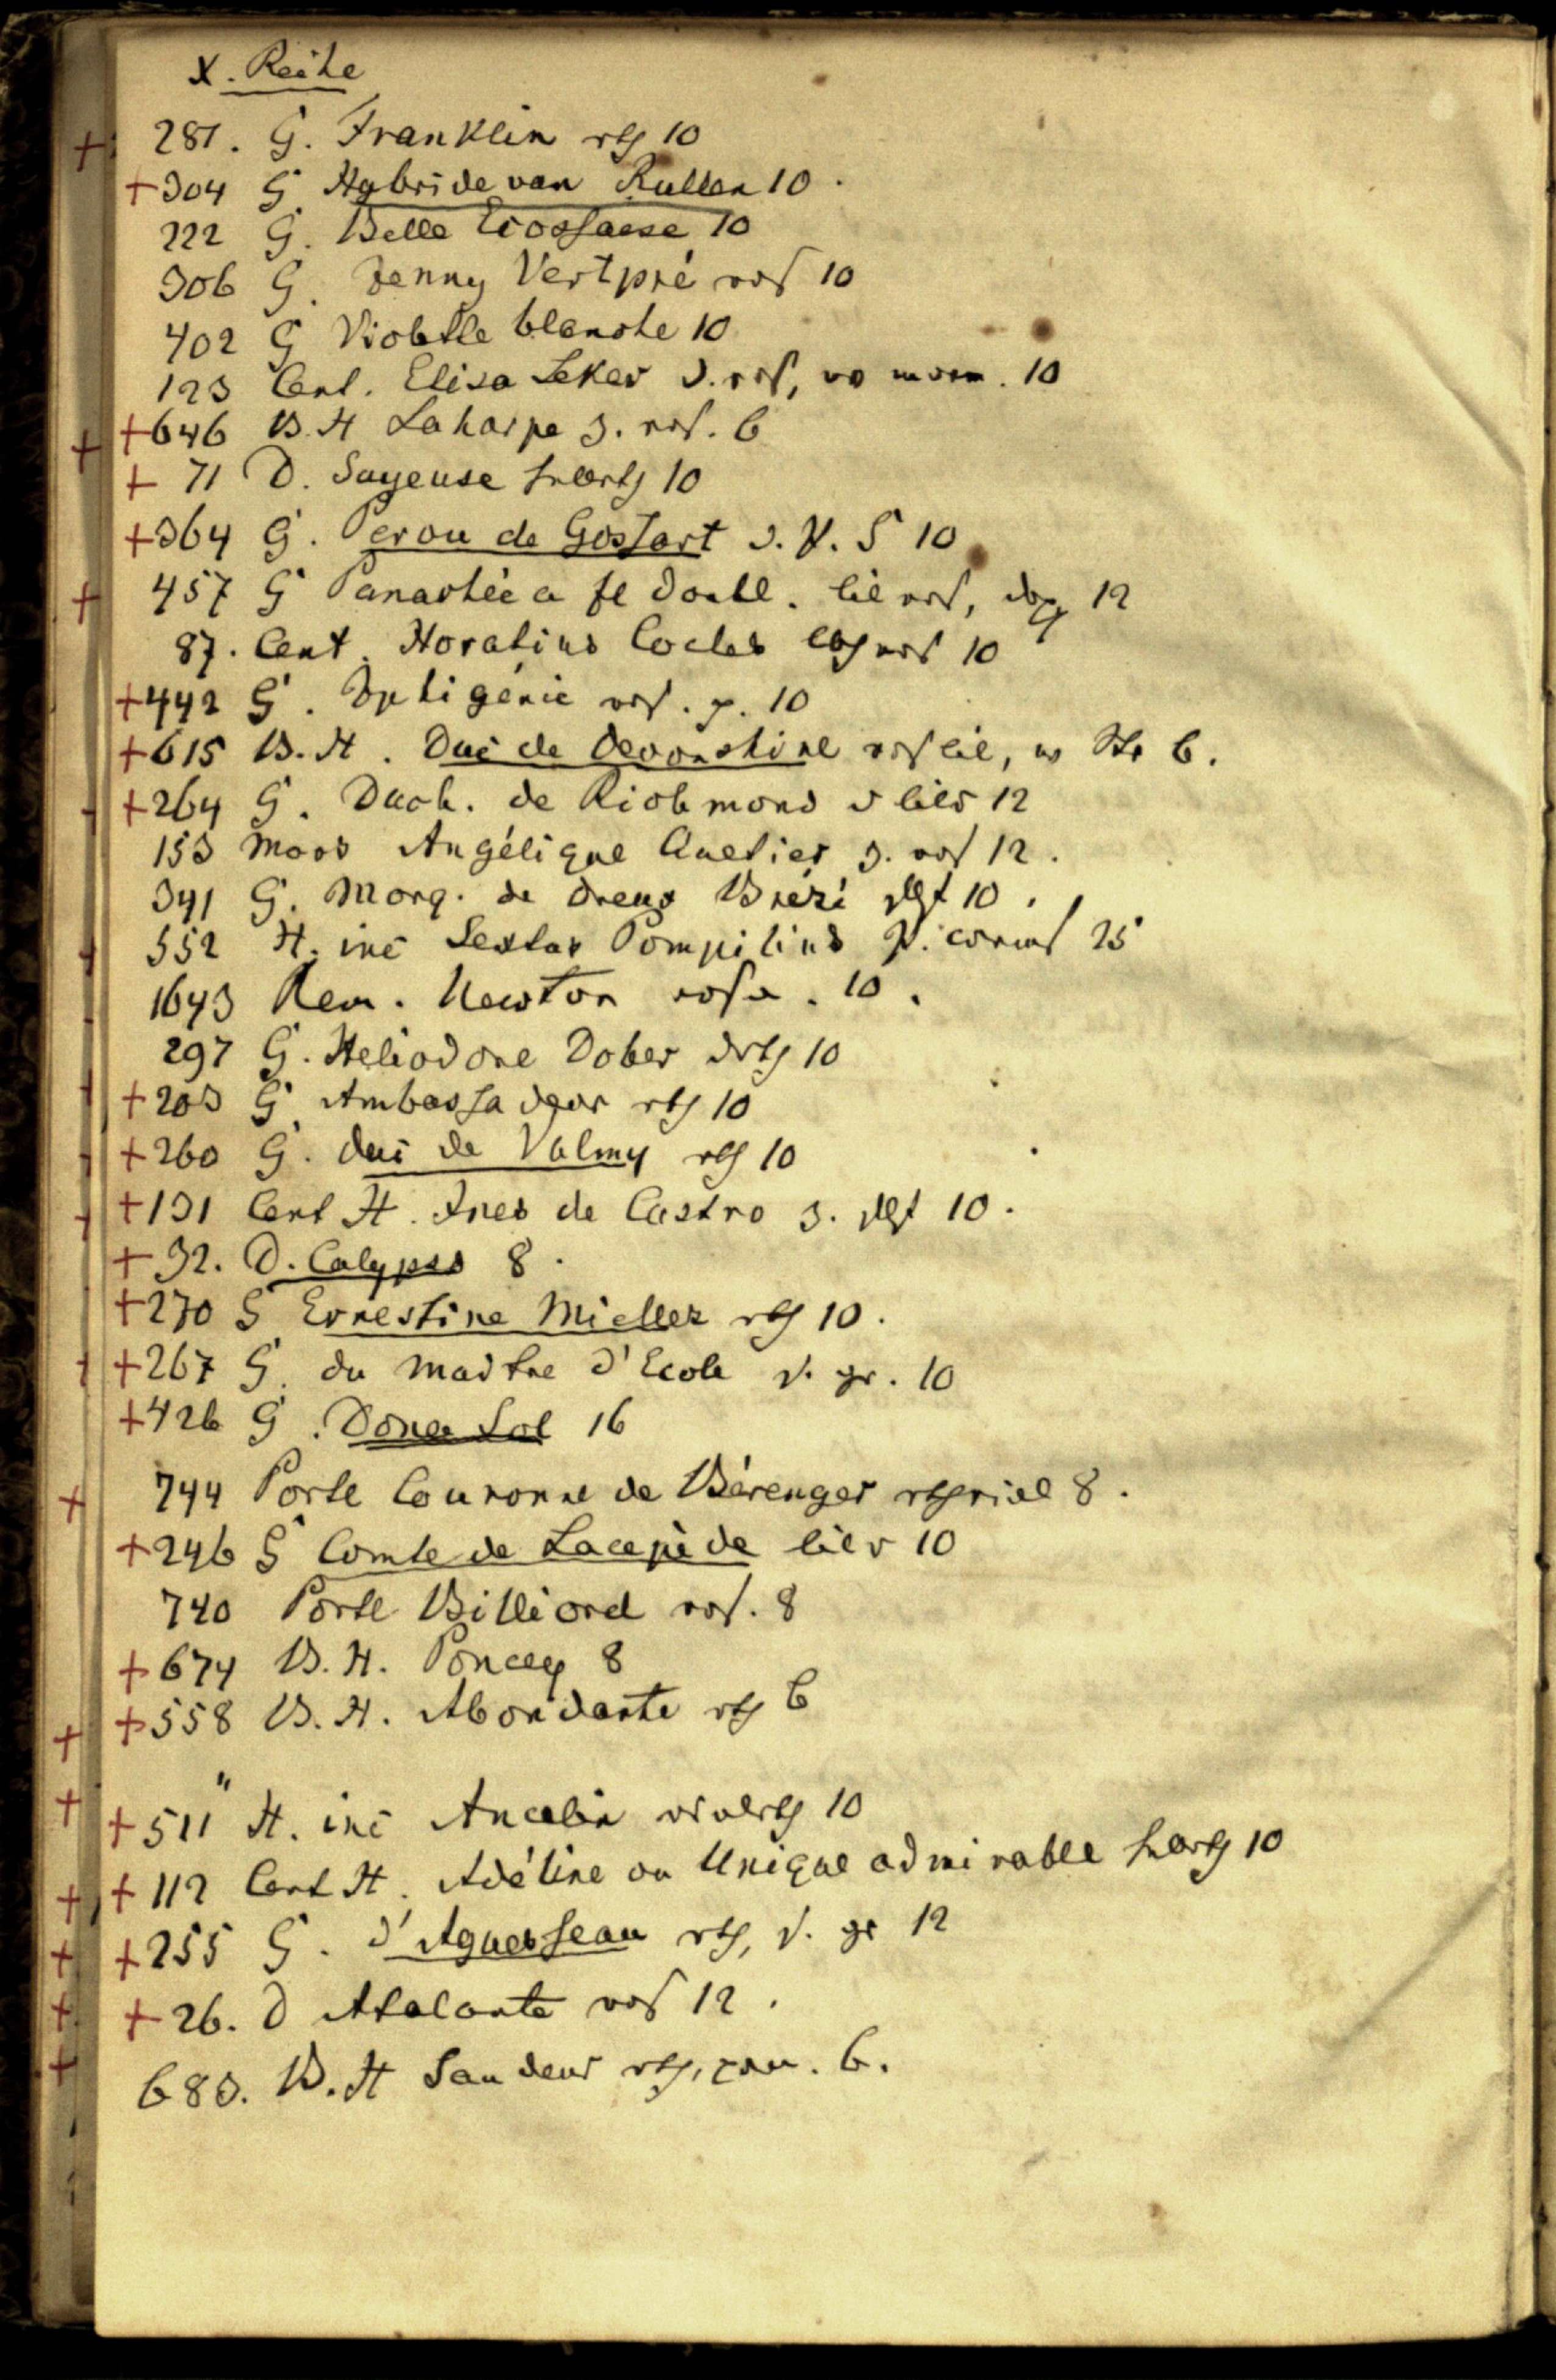 X. Reihe
281. G. Franklin rth 10
+304 G. Hybride van Rullen 10.
222 G. Belle Ecossaise 10
306 G. Jenny Vertpré ros 10
402 G Violette blanche 10
123 Cent. Elisa Leker d. ros, 10
+646 B. H Laharpe 3. ros. 6
+ 71 D. Joyeuse 10
+364 G. Perou de Gossart d. V. S 10
457 G Panachée a fl doubl. lil ros, 12
87. Cent. Horatius Cocles ros 10
+442 G. Iphigénie ros. p. 10
+615 B. H. Duc de Devonshire ros lil, w 6.
+264 G. Duch. de Richmond d lil 12
153 Moos Angélique Quetier 3. ros 12.
341 G. Marq. de Dreux Brézé 10.
552 H. inc Sextus Pompilius 25
1643 Rem. Newton rosa. 10.
297 G. Heliodore Dober drth 10
+203 G. Ambassadeur rth 10
+260 G. duc de Valmy rth 10
+131 Cent H. Ines de Castro 3. 10.
+ 32. D. Calypso 8.
+270 G Ernestine Miellez rth 10.
+267 G. du Maitre d'Ecole v. gr. 10
+426 G. Dona Sol 16
744 Portl Couronne de Bérenger 8.
+246 G Comte de Lacepède lil 10
740 Portl Billiard ros. 8
+674 B. H. Poncey 8
+558 B. H. Abondante rth 6
+511" H. inc Ancelin 10
+112 Cent H. Adéline ou Unique admirable 10
+255 G. d'Aguesseau rth, v. gr 12
+26. D Atalante ros 12.
683. B. H Sandeur rth, 6.